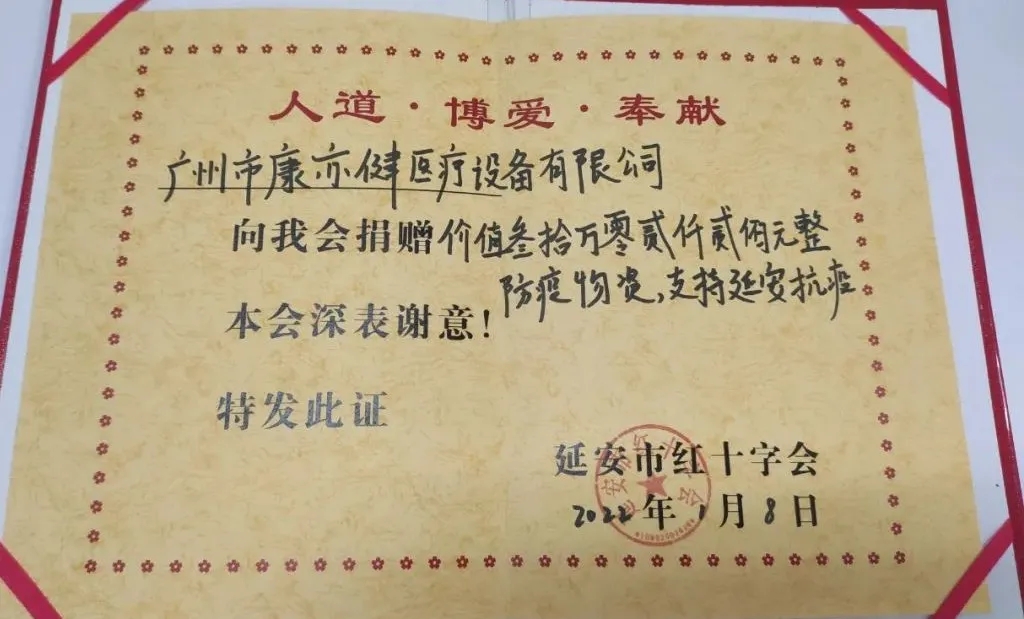 人道·博爱·奉献
广州市康亦健医疗设备有限公司
向我会捐赠价值叁拾万零贰仟贰佰元整
防疫物资,支持延安抗疫
本会深表谢意!
特发此证
延安市红十字会
2022年1月8日
延安市红十字会